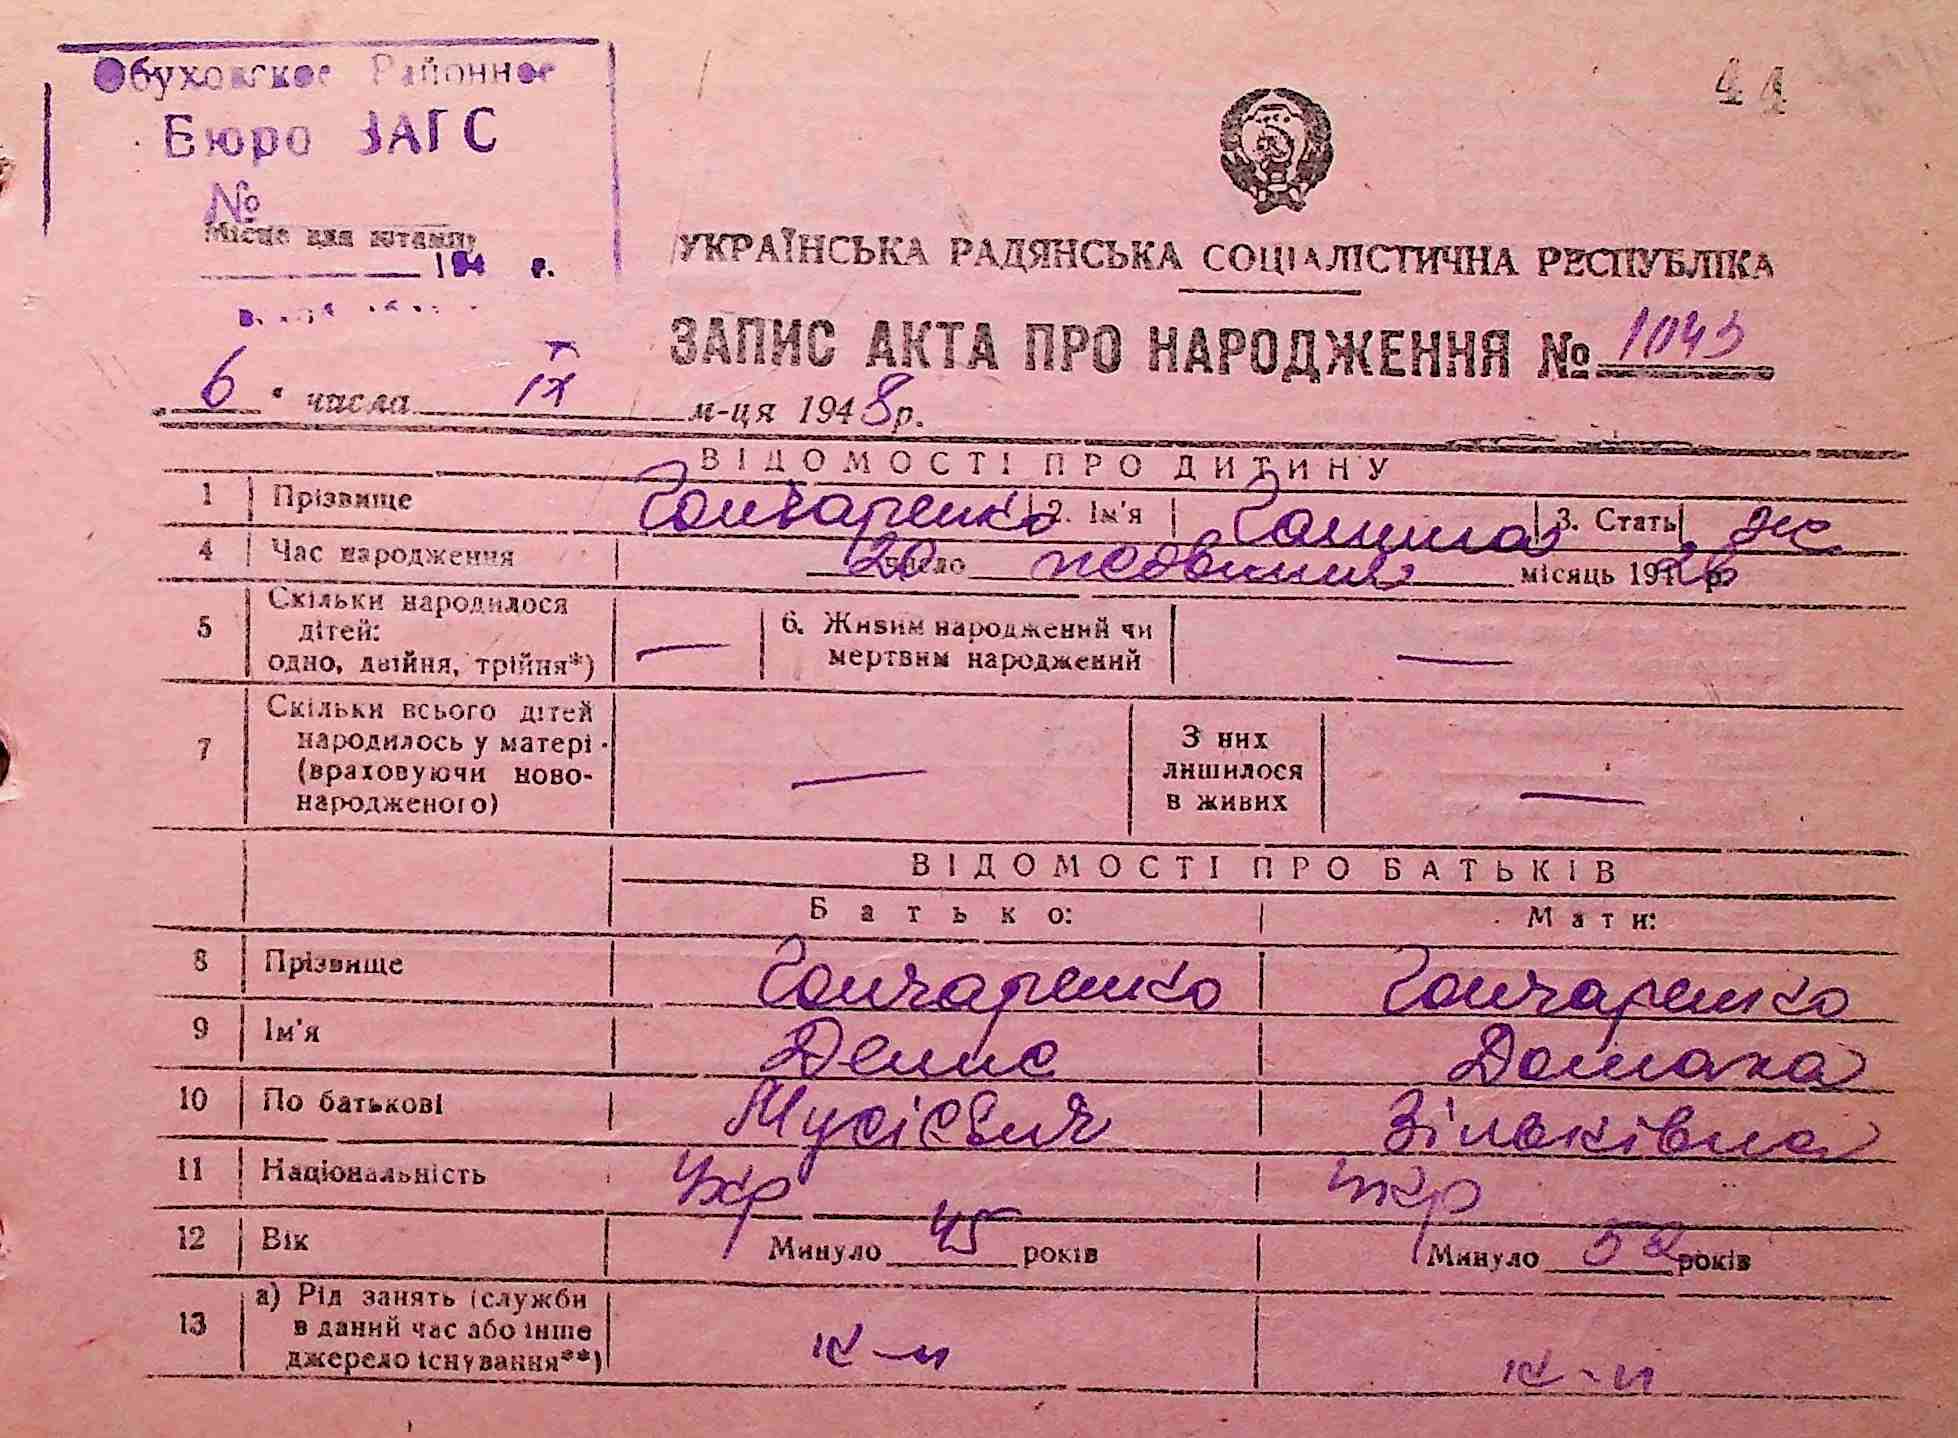 44
Обуховское Районное
Бюро ЗАГС
№
Місце для штампу
194 г.
УКРАЇНСЬКА РАДЯНСЬКА СОЦІАЛІСТИЧНА РЕСПУБЛІКА
ЗАПИС АКТА ПРО НАРОДЖЕННЯ № 1043
6 числа ІХ м-ця 1948 р.
ВІДОМОСТІ ПРО ДИТИНУ
1 Прізвище Гончаренко 2. Ім'я Галина 3. Стать ж
4 Час народження 20 число жовтня місяць 1926 р.
5 Скільки народилося дітей: одно, двійня, трійня*) — 6. Живим народжений чи мертвим народжений —
7 Скільки всього дітей народилось у матері (враховуючи новонародженого) — З них лишилося в живих —
ВІДОМОСТІ ПРО БАТЬКІВ
Батько: Мати:
8 Прізвище Гончаренко Гончаренко
9 Ім'я Денис Домаха
10 По батькові Мусієвич Зіньківна
11 Національність Укр Укр
12 Вік Минуло 45 років Минуло 52 років
13 а) Рід занять (служби в даний час або інше джерело існування**) к-к к-к